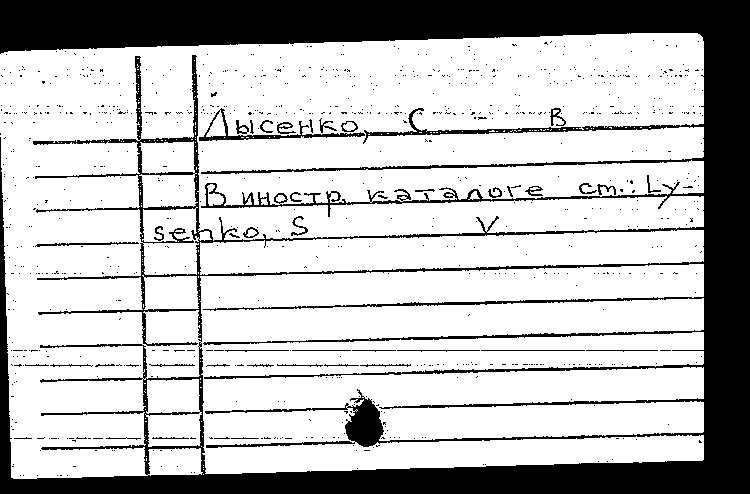 Лысенко, С В
В иностр. каталоге см.: Ly-
senko, S V